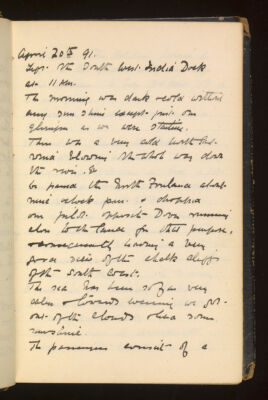 April 20th 91.
Left the South West India Dock
at 11 am.
The morning was dark & cold without
any sun shine except just one
glimpse as we were starting.
There was a very cold north
wind blowing the whole way down
the river. &
We passed the North Foreland about
nine o'clock p.m. & dropped
our pilot opposite Dover running
close to the land for that purpose,
consequently having a very
good view of the chalk cliffs
of the south coast.
The sea has been so far very
calm & towards evening we got
out of the clouds & had some
sunshine.
The passengers consist of a